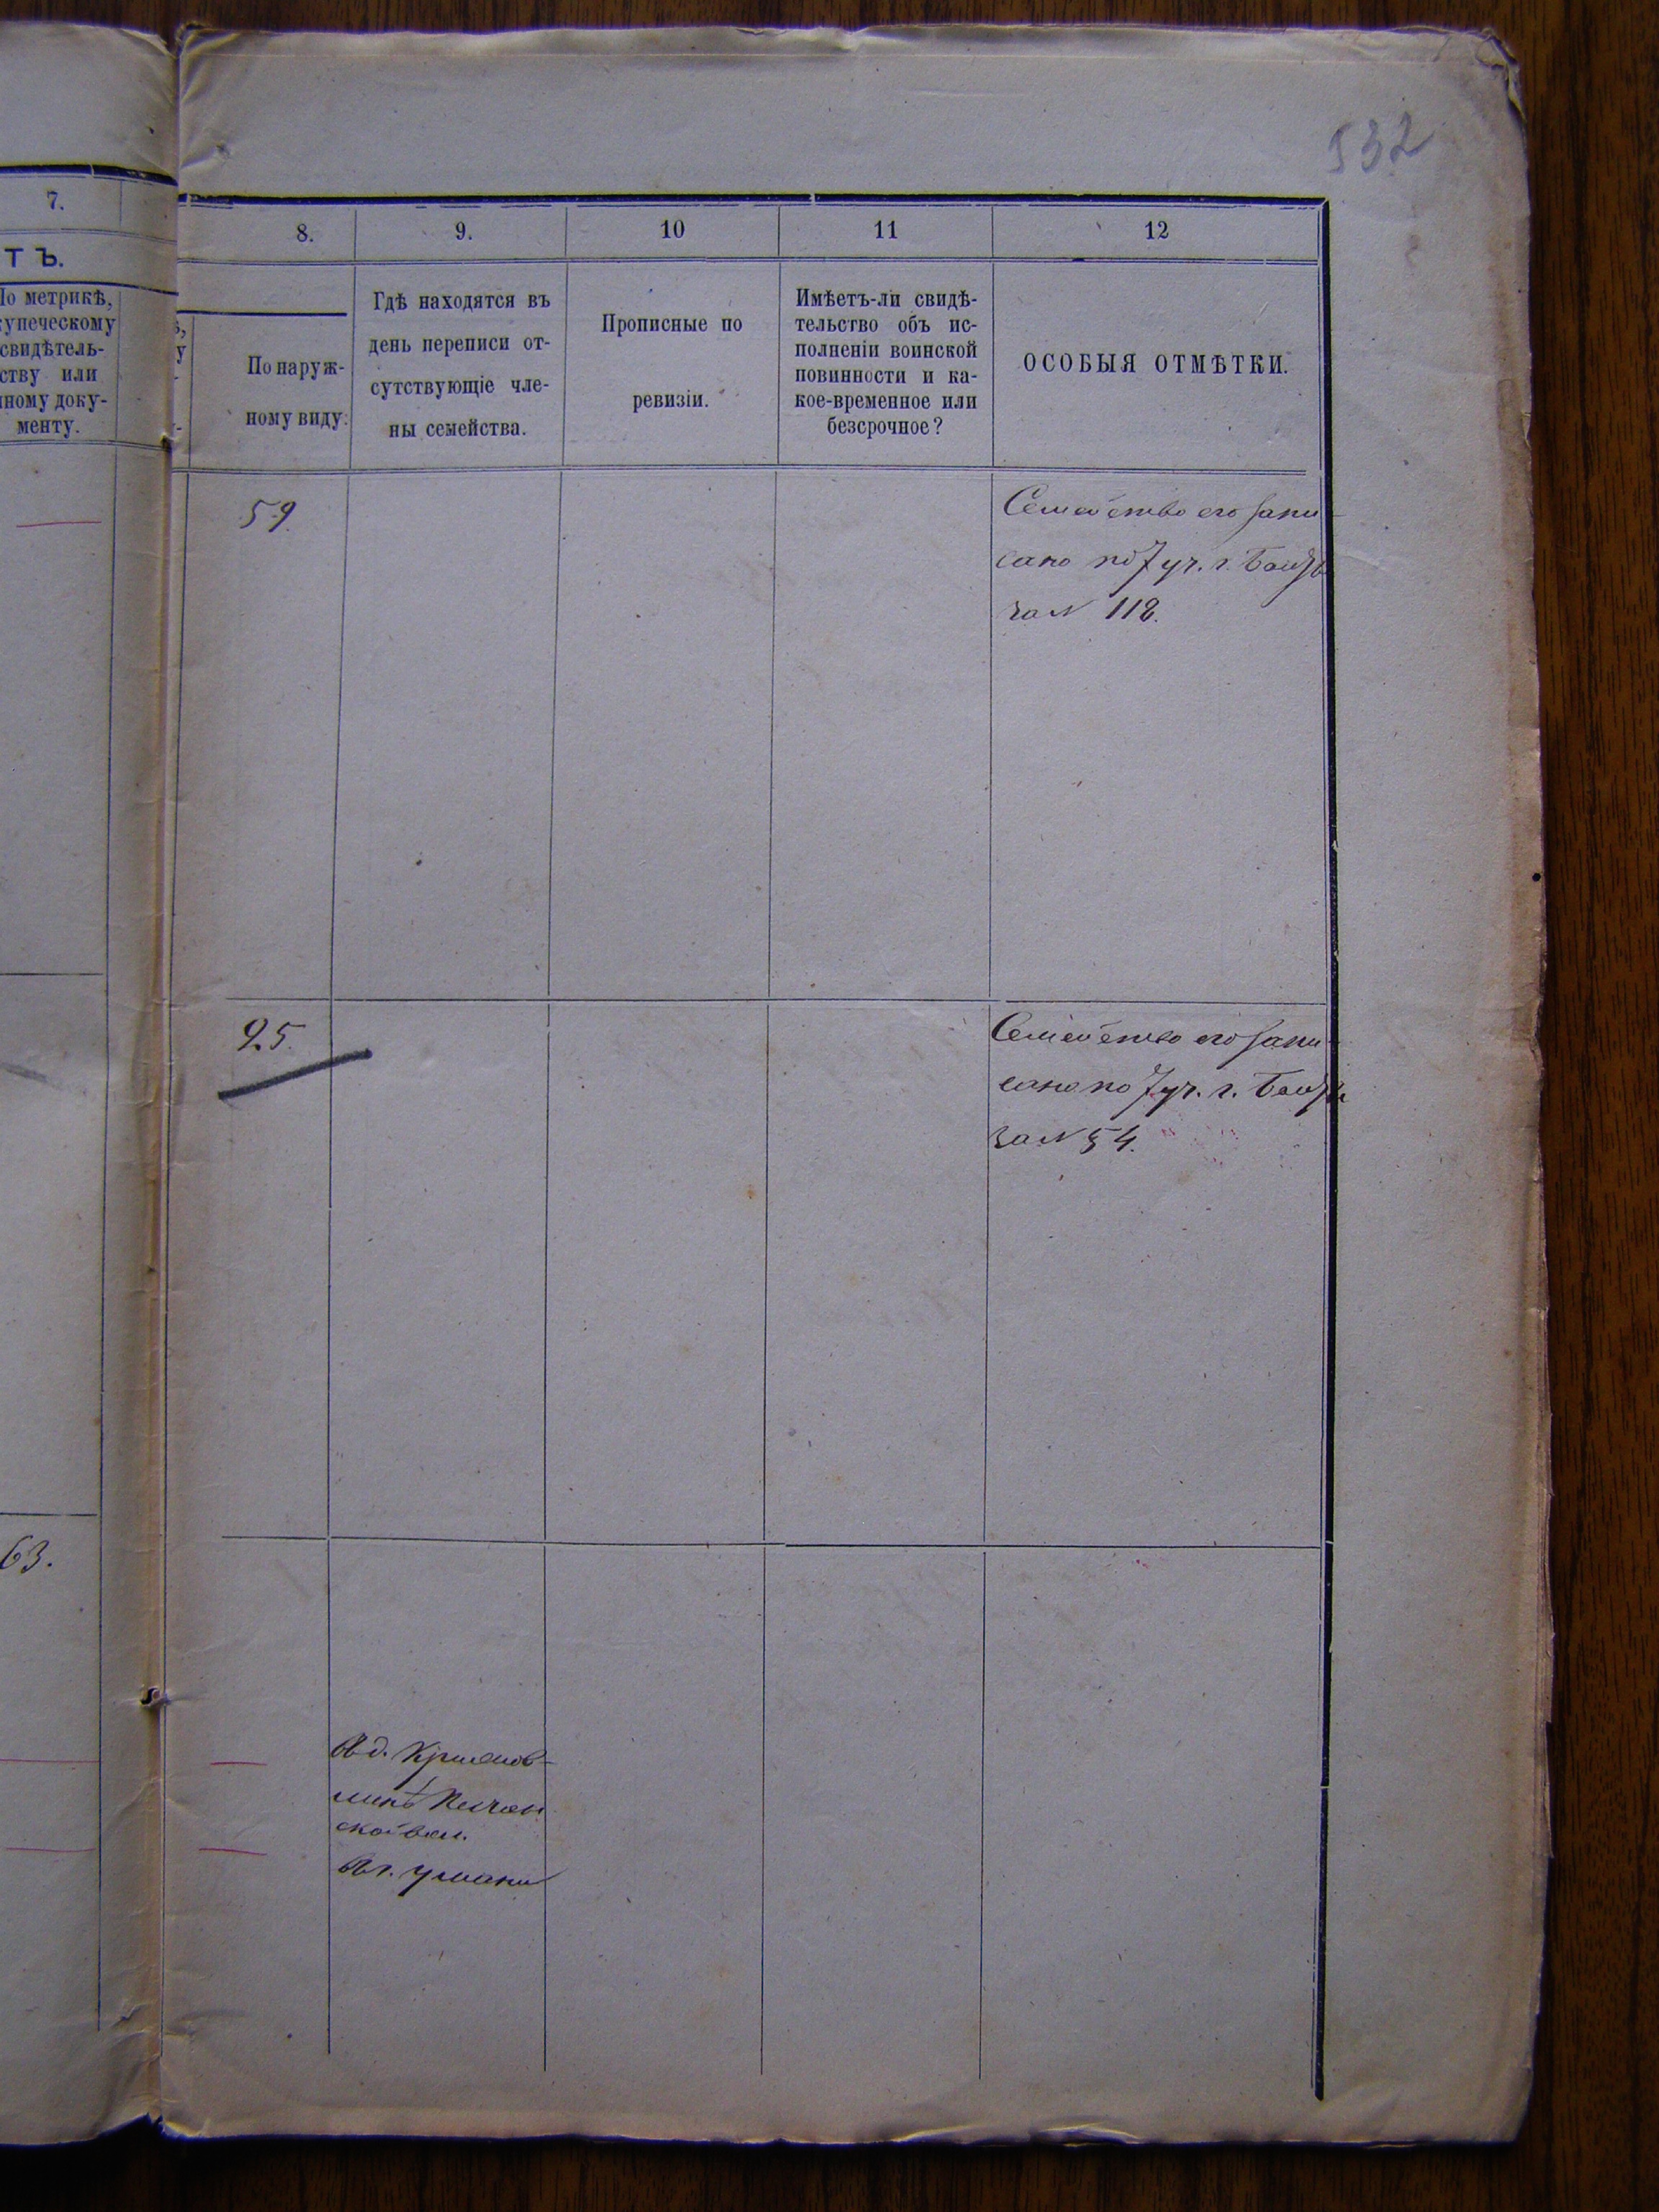 532
7.
ТЪ.
По метрикѣ,
купеческому
свидѣтель-
ству или
иному доку-
менту.
63.
8.
9.
10
11
12
По наруж-
ному виду.
Гдѣ находятся въ
день переписи от-
сутствующіе чле-
ны семейства.
Прописные по
ревизіи.
Имѣетъ-ли свидѣ-
тельство объ ис-
полненіи воинской
повинности и ка-
кое-временное или
безсрочное?
ОСОБЫЯ ОТМѢТКИ.
59.
Семейство его запи-
сано по 7 уч. г.
за N 118.
25.
Семейство его запи-
сано по 7 уч. г.
за N 54.
Въ д.
ской вол.
Въ г. Умани